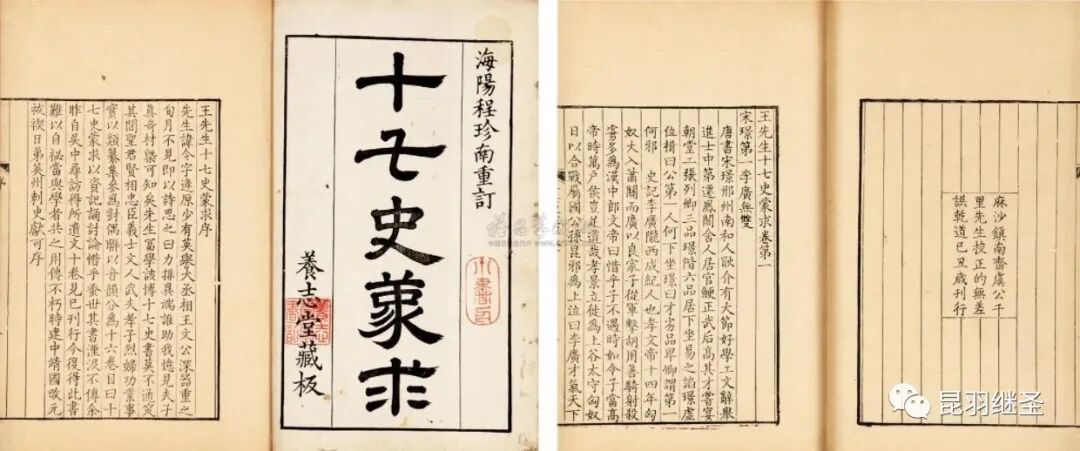 海陽程珍南重訂
十七史蒙求
養志堂藏板
王先生十七史蒙求序
先生諱令字逢原少有英譽大丞相王文公深器重之
旬月不見即以詩思之曰力排異端誰助我憶見夫子
真奇材槩可知矣先生冨學該博十七史書莫不通究
其間聖君賢相忠臣義士文人武夫孝子烈婦功業事
實以類纂集叅爲對偶聯以音韻分爲十六卷目曰十
七史蒙求以資記誦討論惜乎蚤世其書湮没不傳余
昨自吳中尋訪得所遺文十卷見已刊行今復得此書
難以自祕當與學者共之用傳不朽時建中靖國改元
祓禊日弟英州刺史獻可序
序
麻沙鎮南齋虞公千
里先生校正的無差
誤乾道己丑歲刊行
王先生十七史蒙求卷第一
宋璟第一 李廣無雙
唐書宋璟邢州南和人耿介有大節好學工文辭舉
進士中第遷鳳閣舍人居官鯁正武后高其才嘗宴
朝堂二張列卿三品璟階六品居下坐易之諂璟虛
位揖曰公第一人何下坐璟曰才劣品卑卿謂第一
何邪 史記李廣隴西成紀人也孝文帝十四年匈
奴大入蕭關而廣以良家子從軍擊胡用善騎射殺
虜多爲漢中郎文帝曰惜乎子不遇時如令子當高
帝時萬户侯豈足道哉孝景立徙爲上谷太守匈奴
日以合戰屬國公孫昆邪爲上泣曰李廣才氣天下
昆羽继圣